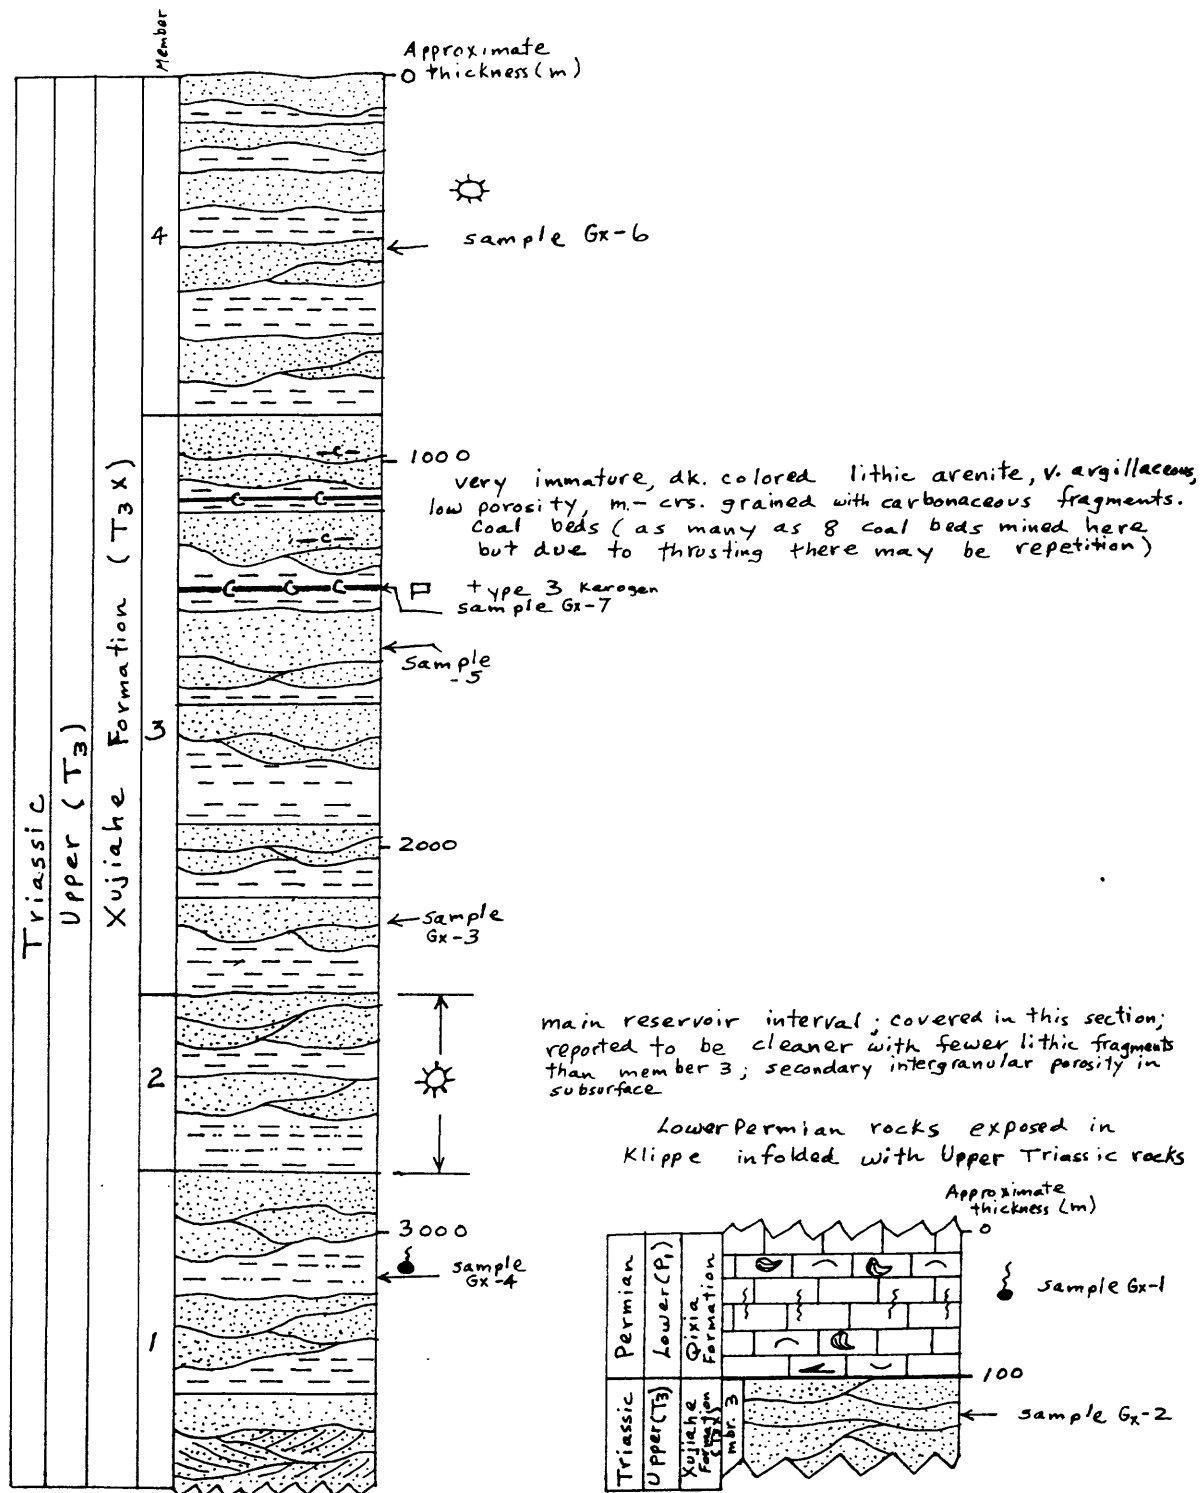 Member
Approximate
0 thickness (m)
Triassic
Upper (T3)
Xujiahe Formation (T3X)
4
sample Gx-6
3
-c-
1000
very immature, dk. colored lithic arenite, v. argillaceous,
low porosity, m-crs. grained with carbonaceous fragments.
Coal beds (as many as 8 coal beds mined here
but due to thrusting there may be repetition)
C C
-c-
C C C
type 3 kerogen
sample Gx-7
sample
-5
2000
sample
Gx-3
2
main reservoir interval; covered in this section;
reported to be cleaner with fewer lithic fragments
than member 3; secondary intergranular porosity in
subsurface
1
3000
sample
Gx-4
Lower Permian rocks exposed in
Klippe infolded with Upper Triassic rocks
Approximate
thickness (m)
0
Permian
Lower (P1)
Qixia
Formation
sample Gx-1
100
Triassic
Upper (T3)
Xujiahe
Formation
(T3X)
mbr. 3
sample Gx-2